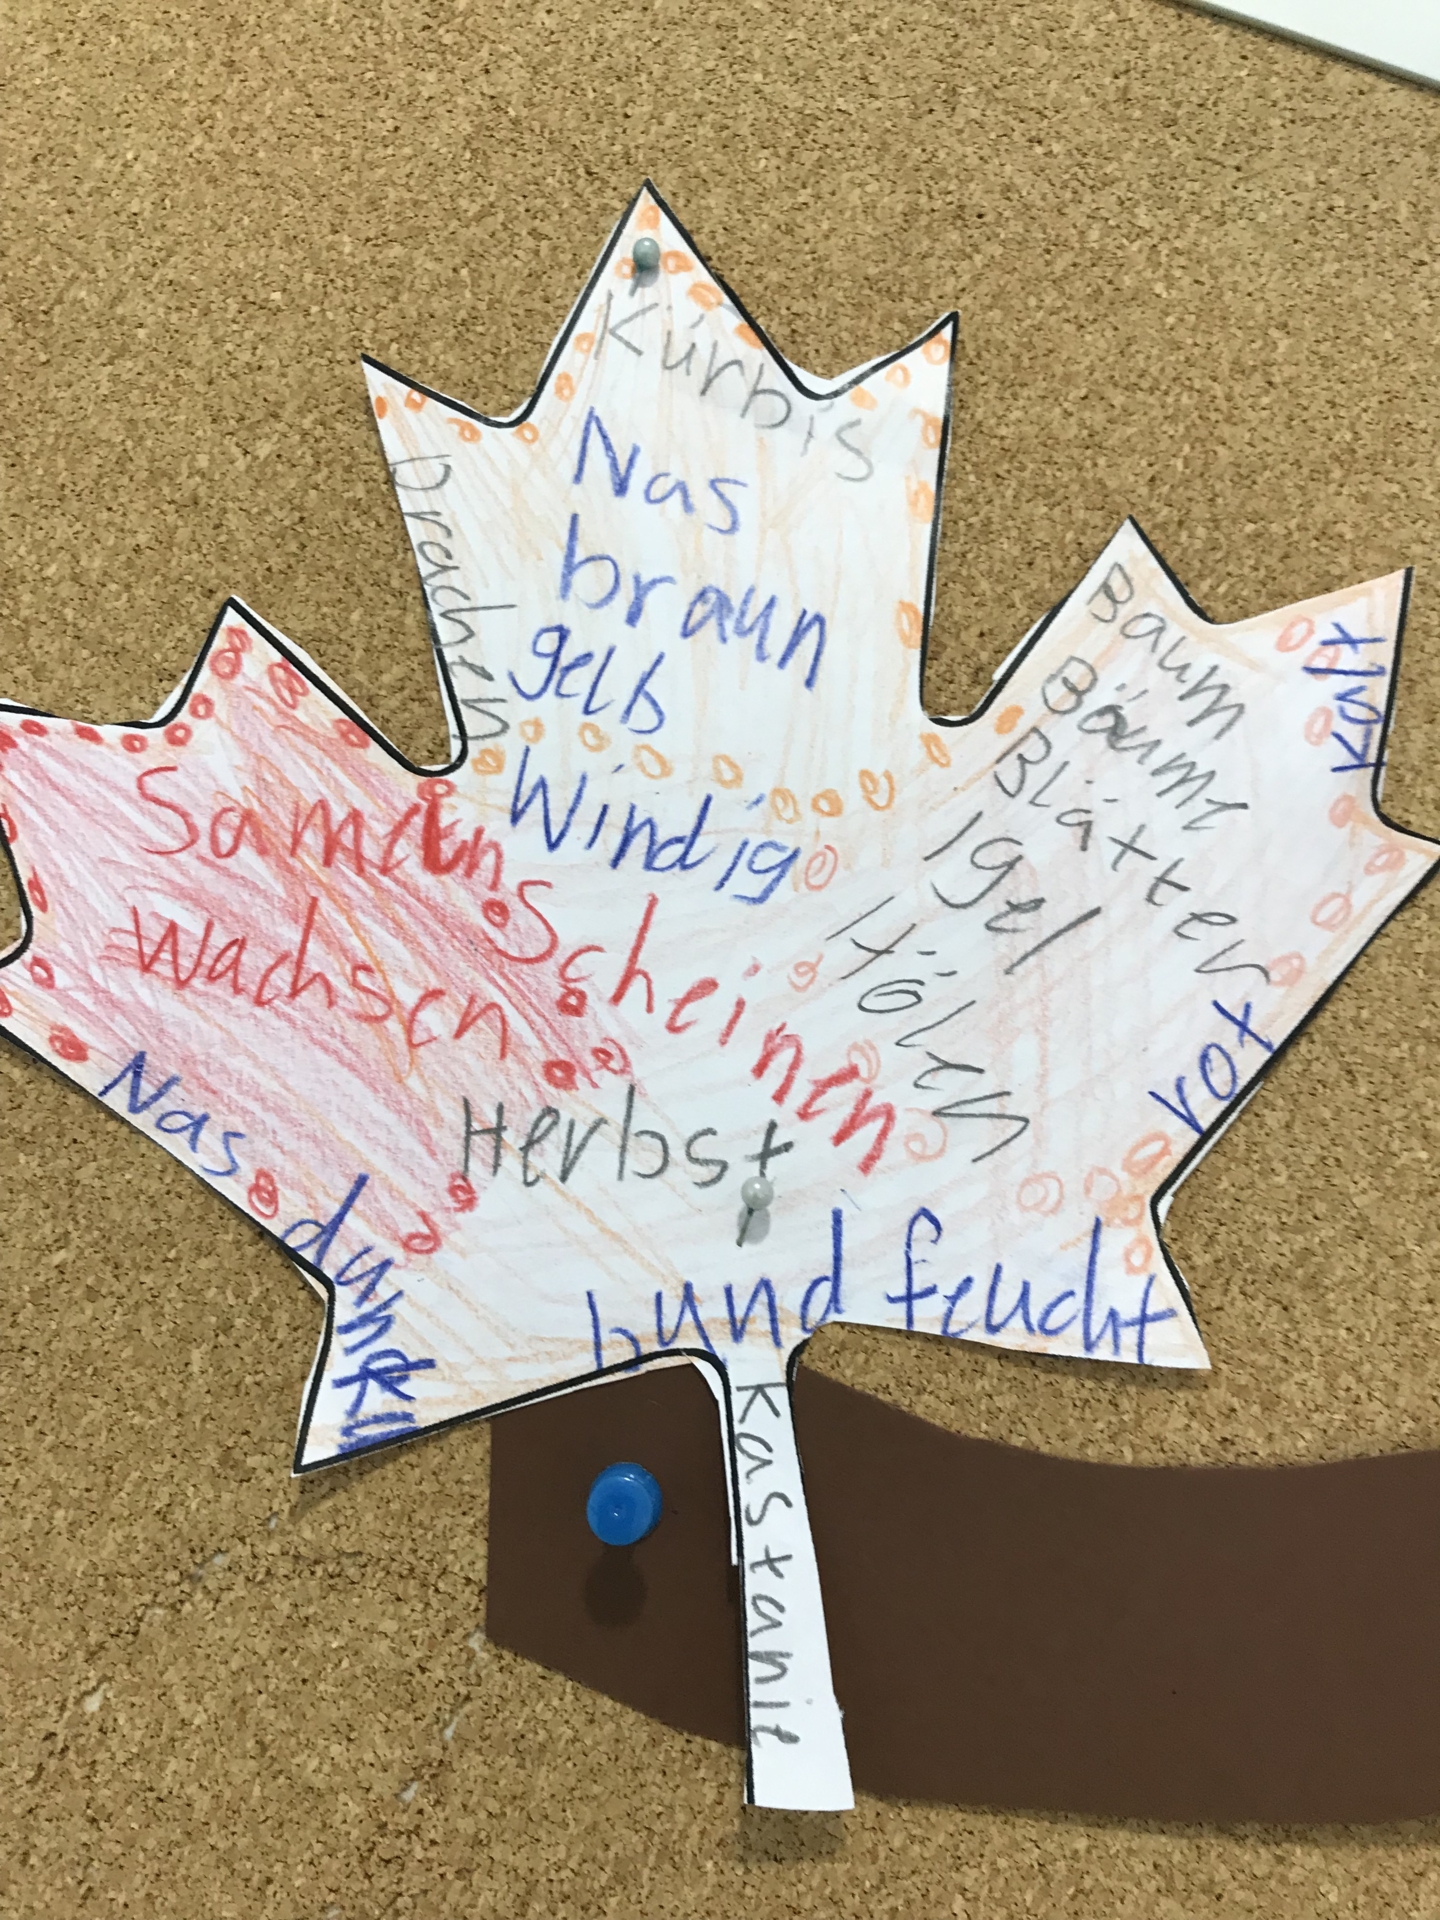 Kürbis
Nas
braun
gelb
Windig
Drachen
Baum
Bäume
Blätter
Igel
kalt
rot
Samen
Wachsen
Scheinen
Nas
dunkel
Herbst
bund feucht
Kastanie